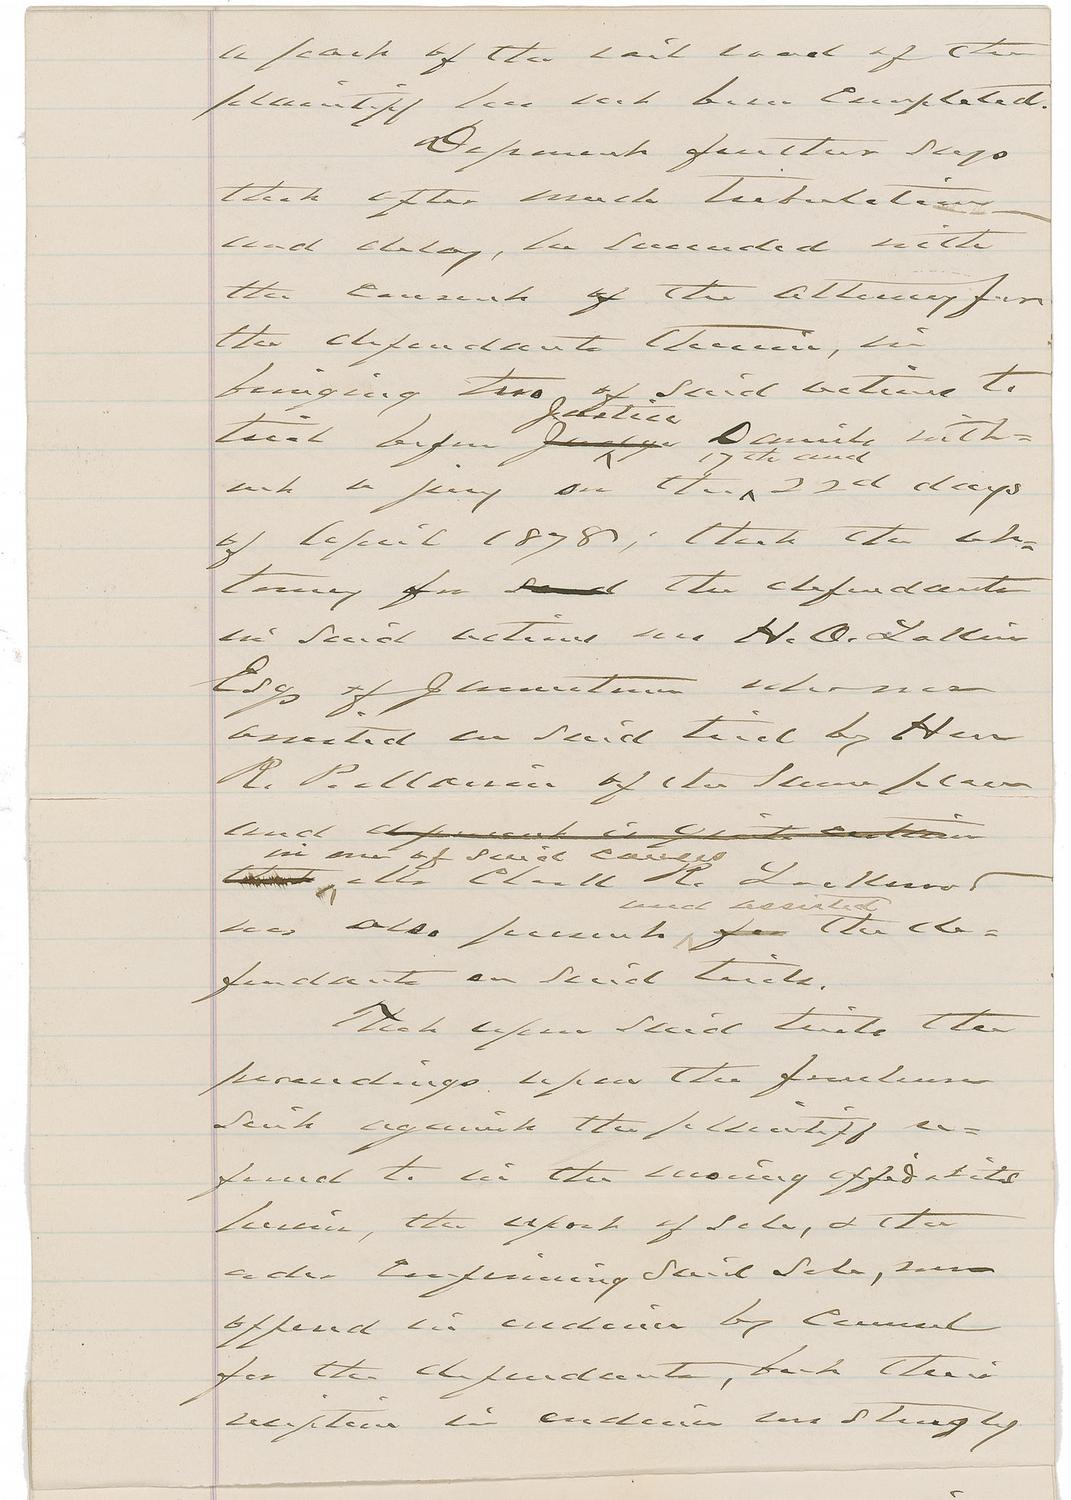 a part of the rail road of the
plaintiff has not been completed.
Deponent further says
that after much tribulation
and delay, he succeeded with
the consent of the attorney for
the defendants therein, in
bringing two of said actions to
Justice
trial before Judge Daniels with=
17th and
out a jury on the 22d days
of April 1878; that the at=
torney for said the defendants
in said actions was H. O. Lakin
Esq of Jamestown who was
assisted on said trial by Hon
R. P. Marvin of the same place
and deponent is quite certain
in one of said causes
that Clark R. Lockwood
was also present
and assisted
for the de=
fendants on said trials.
That upon said trials the
proceedings upon the foreclosure
suit against the plaintiff re=
ferred to in the moving affidavits
herein, the report of sale, & the
order confirming said sale, were
offered in evidence by Counsel
for the defendants, but their
reception in evidence was strongly